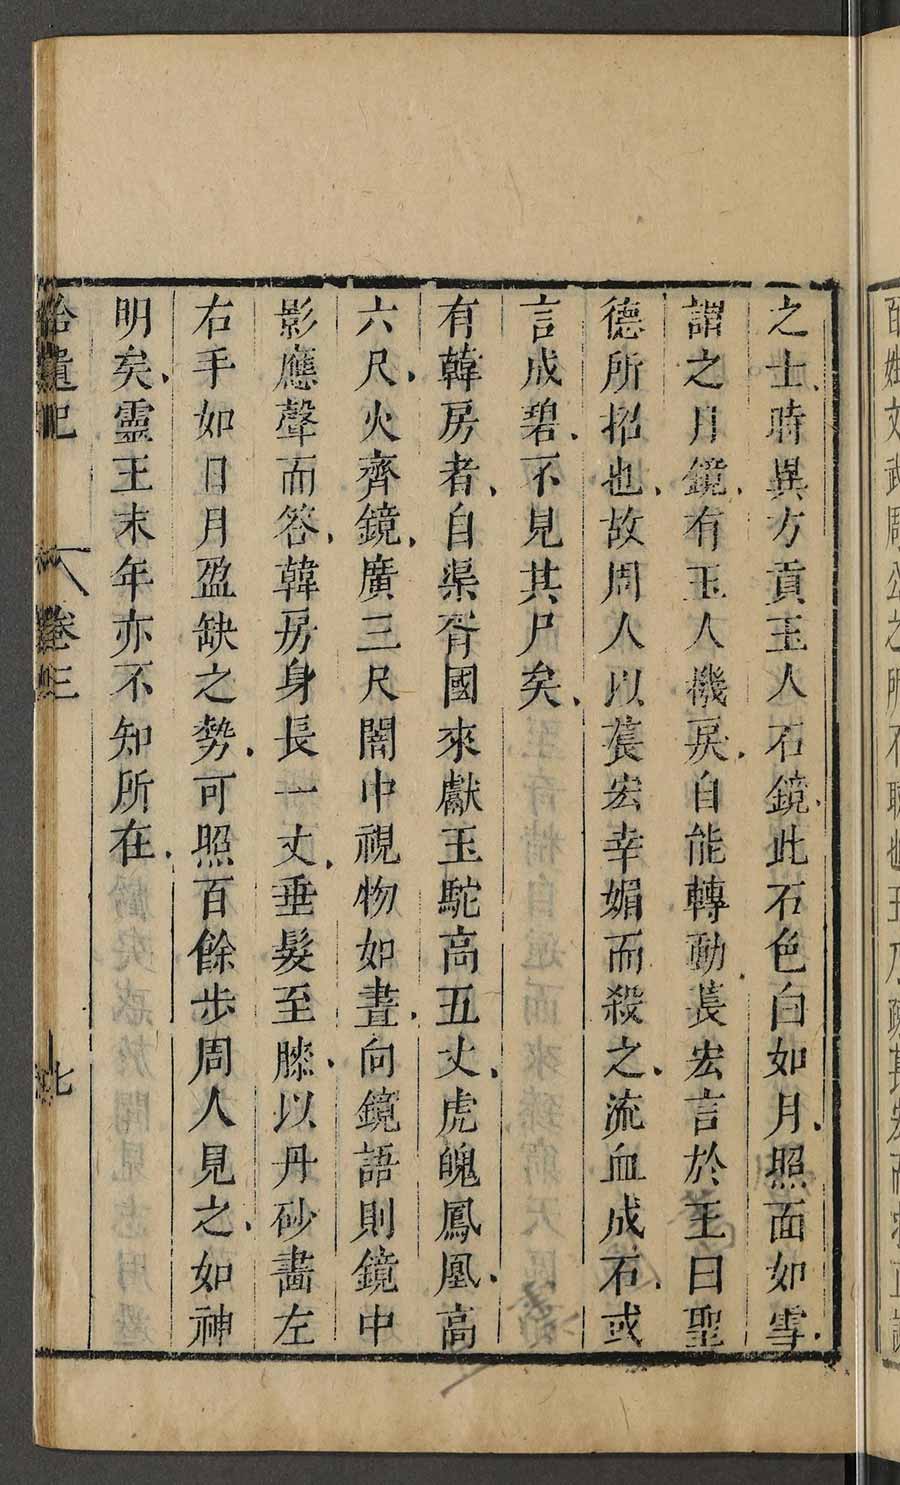 之士時異方貢玉人石鏡此石色白如月照面如雪
謂之月鏡有玉人機戾自能轉動萇宏言於王曰聖
德所招也故周人以萇宏幸媚而殺之流血成石或
言成碧不見其尸矣
有韓房者自渠胥國來獻玉駝高五丈虎魄鳳凰高
六尺火齊鏡廣三尺闇中視物如晝向鏡語則鏡中
影應聲而答韓房身長一丈垂髮至膝以丹砂畵左
右手如日月盈缺之勢可照百餘步周人見之如神
明矣靈王末年亦不知所在
拾遺記 卷三 七